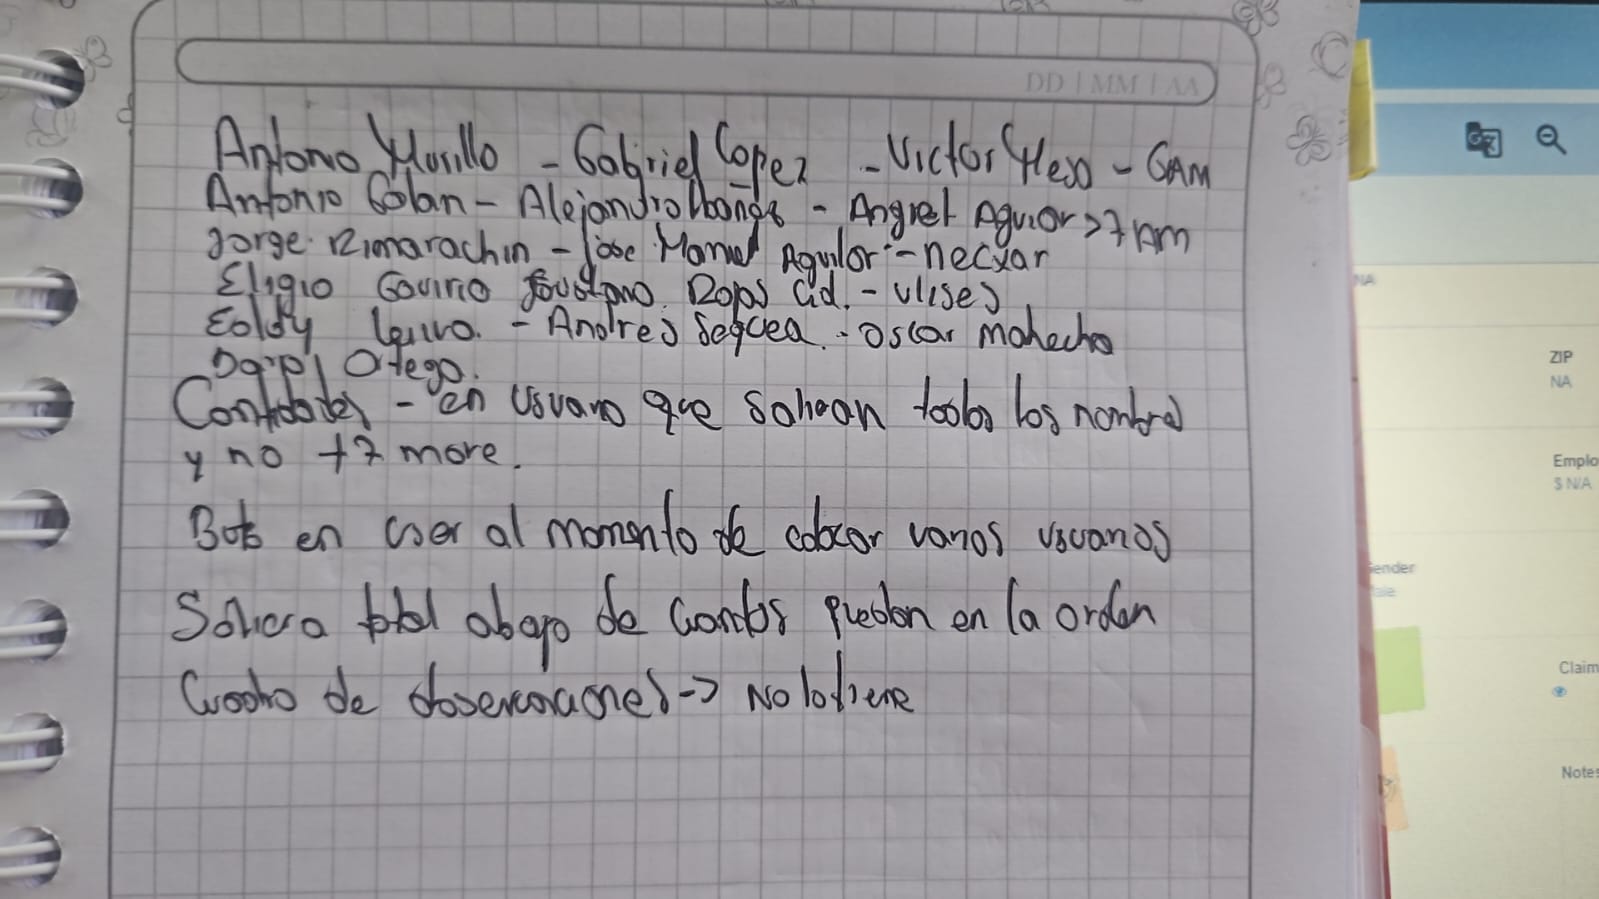 DD | MM | AA
Antonio Murillo - Gabriel Lopez - Victor - 6AM
Antonio Colan - Alejandro - Angiel Aguiar > 7 AM
Jorge Rimarachin - Jose Manuel Aguilar - necxar
Eligio Gavino Rojas Cid. - Ulises
Eoldy - Andres Seqcea. - Oscar Mahecha
Otego.
- en Usuario que salgan todos los nombres
y no +7 more.
en user al momento de colocar varios usuarios
total abajo de cuantos quedan en la orden
Cuadro de observaciones -> No lo tiene
NA
ZIP
NA
Emplo
$ N/A
ender
ale
Claim
Notes